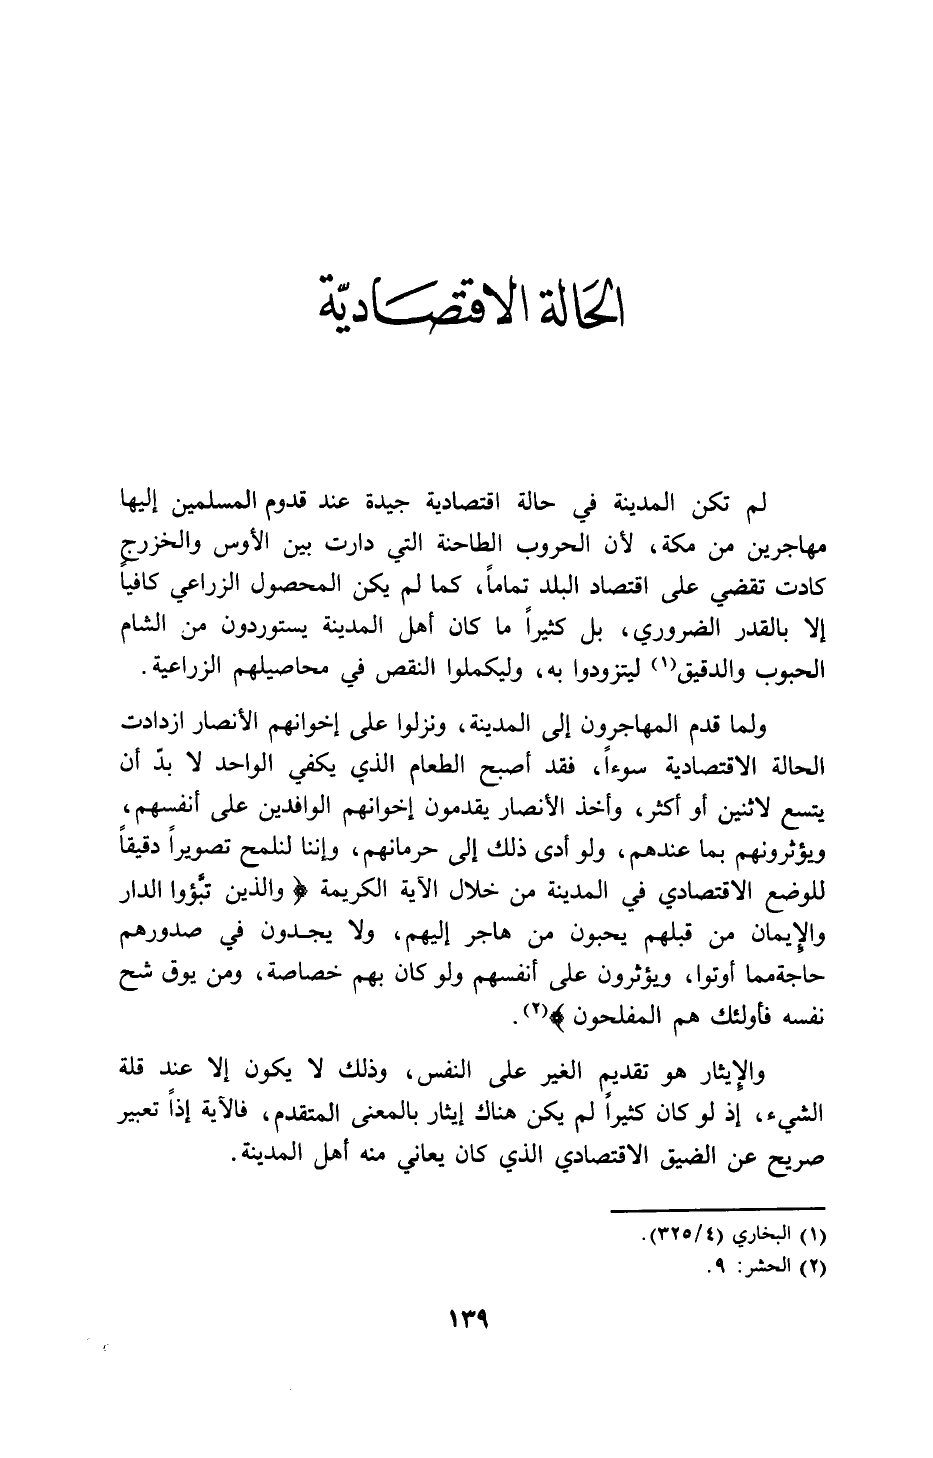 الحالة الاقتصاديّة
لم تكن المدينة في حالة اقتصادية جيدة عند قدوم المسلمين إليها
مهاجرين من مكة، لأن الحروب الطاحنة التي دارت بين الأوس والخزرج
كادت تقضي على اقتصاد البلد تماماً، كما لم يكن المحصول الزراعي كافياً
إلا بالقدر الضروري، بل كثيراً ما كان أهل المدينة يستوردون من الشام
الحبوب والدقيق(١) ليتزودوا به، وليكملوا النقص في محاصيلهم الزراعية.
ولما قدم المهاجرون إلى المدينة، ونزلوا على إخوانهم الأنصار ازدادت
الحالة الاقتصادية سوءاً، فقد أصبح الطعام الذي يكفي الواحد لا بدّ أن
يتسع لاثنين أو أكثر، وأخذ الأنصار يقدمون إخوانهم الوافدين على أنفسهم،
ويؤثرونهم بما عندهم، ولو أدى ذلك إلى حرمانهم، وإننا لنلمح تصويراً دقيقاً
للوضع الاقتصادي في المدينة من خلال الآية الكريمة ﴿ والذين تبَّؤوا الدار
والإيمان من قبلهم يحبون من هاجر إليهم، ولا يجدون في صدورهم
حاجةمما أوتوا، ويؤثرون على أنفسهم ولو كان بهم خصاصة، ومن يوق شح
نفسه فأولئك هم المفلحون ﴾(٢).
والإيثار هو تقديم الغير على النفس، وذلك لا يكون إلا عند قلة
الشيء، إذ لو كان كثيراً لم يكن هناك إيثار بالمعنى المتقدم، فالآية إذاً تعبير
صريح عن الضيق الاقتصادي الذي كان يعاني منه أهل المدينة.
(١) البخاري (٣٢٥/٤).
(٢) الحشر: ٩.
١٣٩